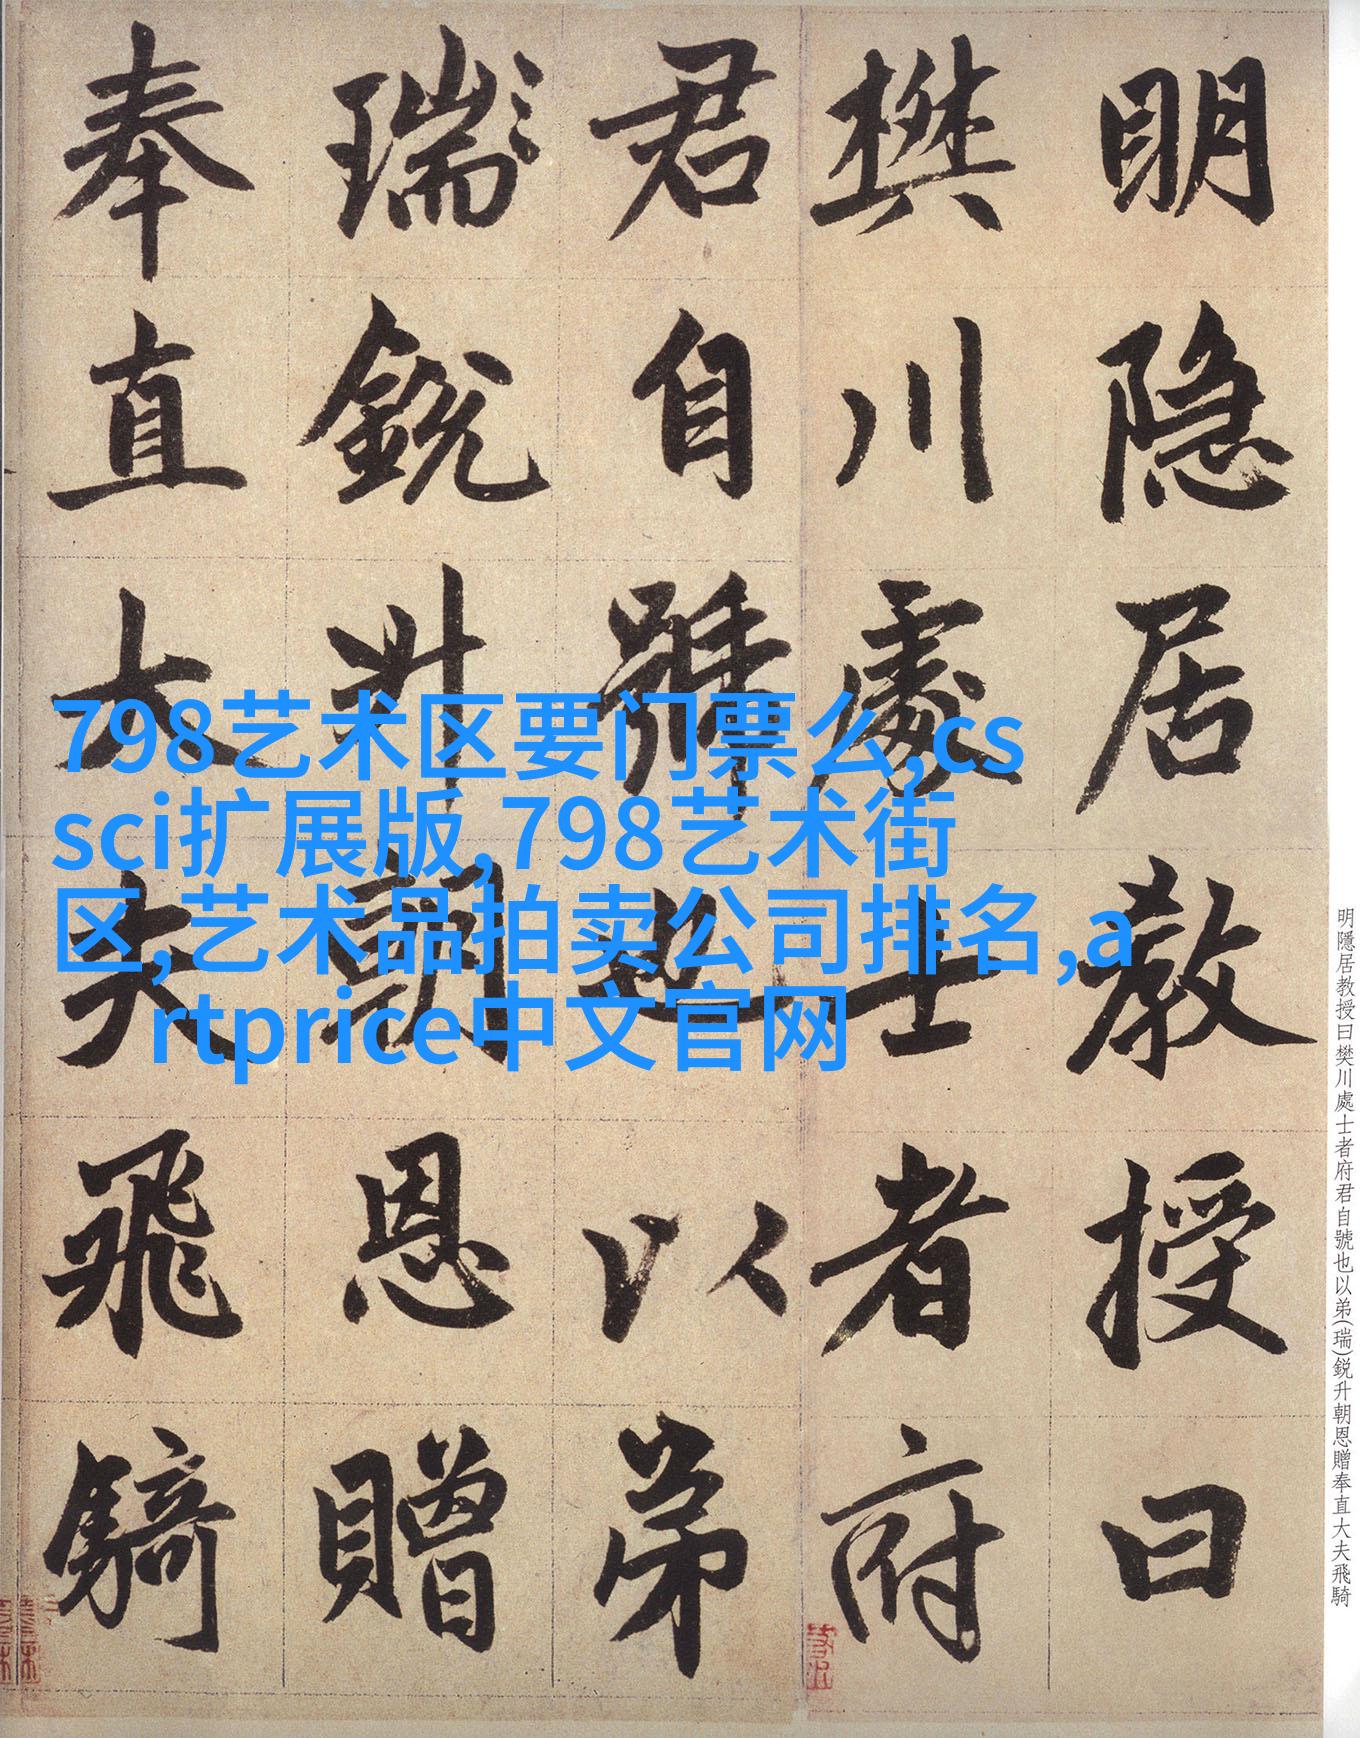 明隐居教授曰
樊川處士者府
君自號也以弟
瑞銳升朝恩贈
奉直大夫飛騎
798艺术区要门票么,cs
sci扩展版,798艺术街
区,艺术品拍卖公司排名,a
rtprice中文官网
明隱居教授曰樊川處士者府君自號也以弟(瑞)鋭升朝恩贈奉直大夫飛騎